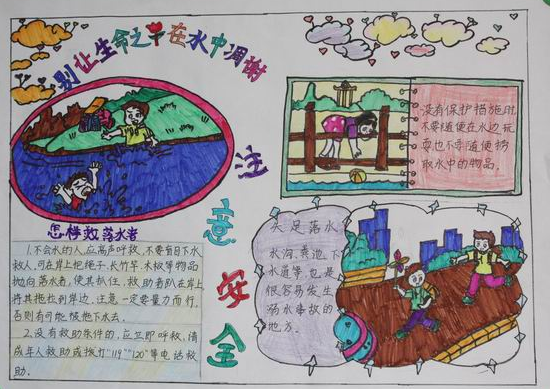 别让生命之花在水中凋谢
注意安全
没有保护措施时,
不要随便在水边玩
耍也不要随便捞
取水中的物品。
怎样救落水者
1.不会水的人,应高声呼救,不要盲目下水
救人,可在岸上把绳子、长竹竿、木板等物品
抛向落水者,使其抓住,救助者趴在岸上
将其拖拉到岸边,注意一定要量力而行,
否则有可能被拖下水去。
2.没有救助条件的,应立即呼救,请
成年人救助或拨打"119""120"等电话救
助。
失足落水
水沟、粪池、下
水道等也是
很容易发生
溺水事故的
地方。